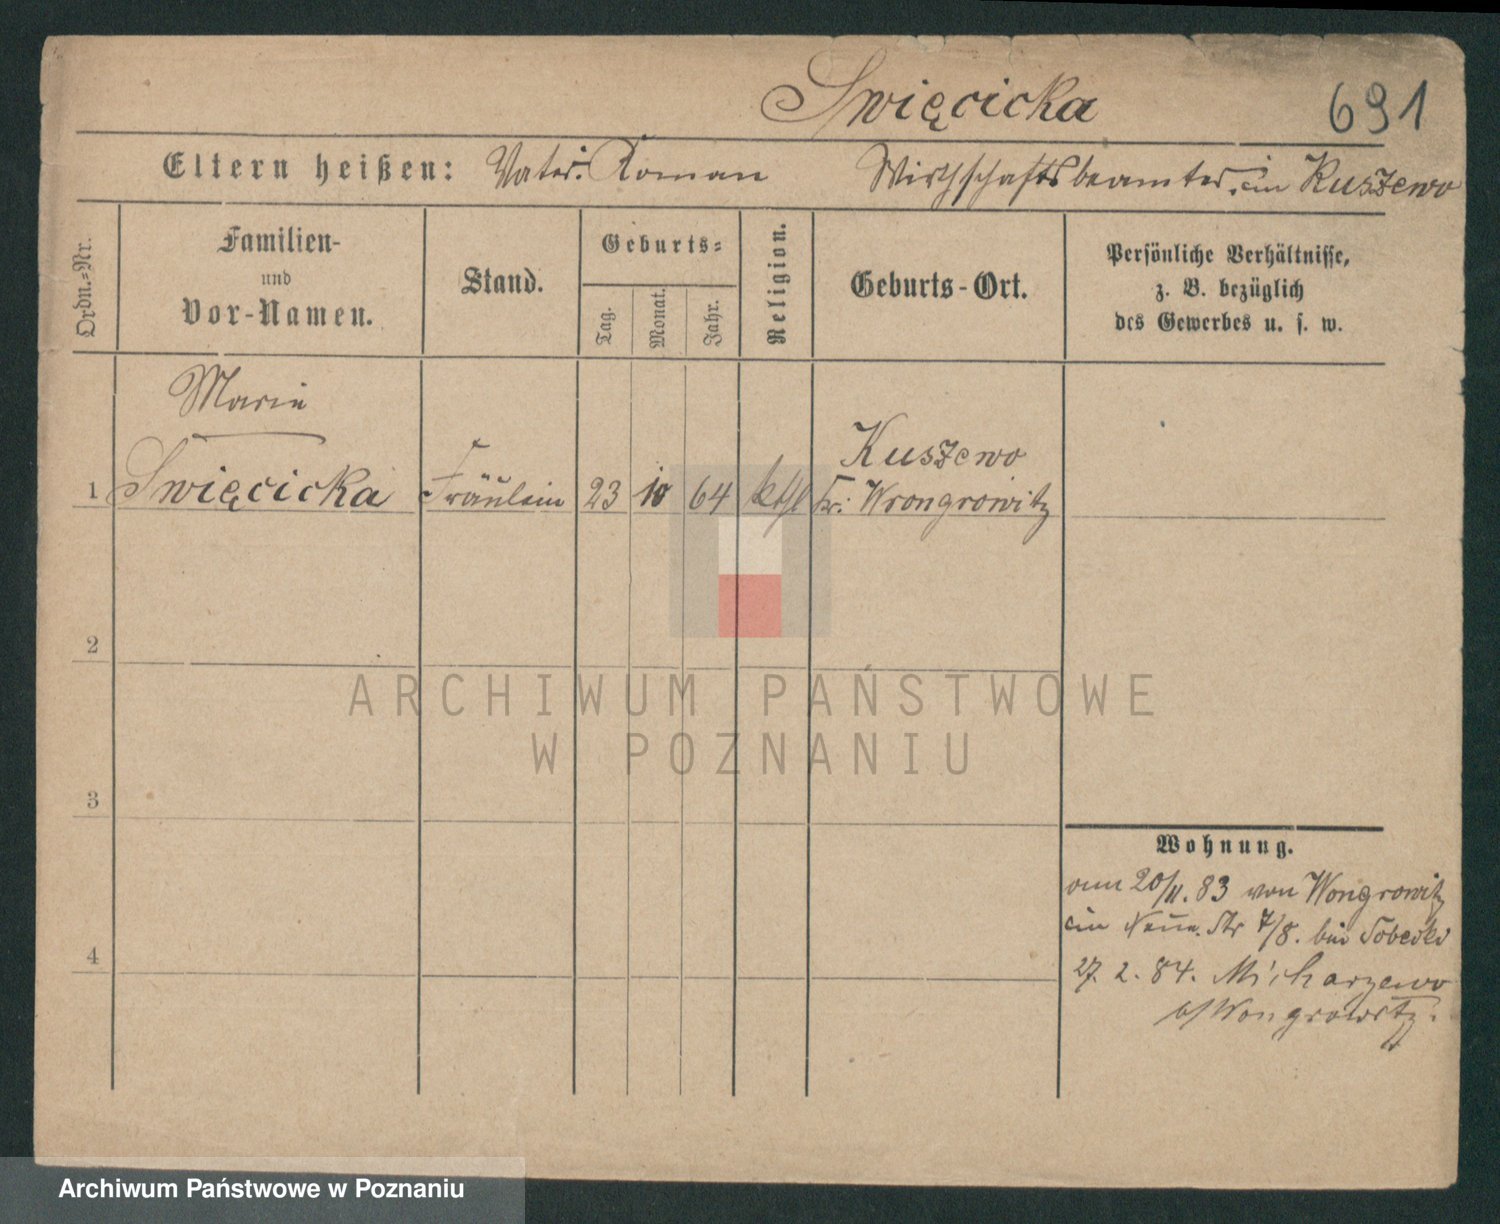 Swięcicka 691
Eltern heißen: Vater: Roman Wirthschaftsbeamter in Kuszewo
Ordn.-Nr.
Familien-
und
Vor-Namen.
Stand.
Geburts-
Tag.
Monat.
Jahr.
Religion.
Geburts-Ort.
Persönliche Verhältnisse,
z. B. bezüglich
des Gewerbes u. s. w.
Marie
Kuszewo
1 Swięcicka Fräulein 23 10 64 kthl Kr: Wrongrowitz
2
ARCHIWUM PAŃSTWOWE
W POZNANIU
3
Wohnung.
am 20/11. 83 von Wongrowitz
in Neue Str 7/8. bei
4
27. 2. 84. Micharzewo
b/Wongrowitz.
Archiwum Państwowe w Poznaniu